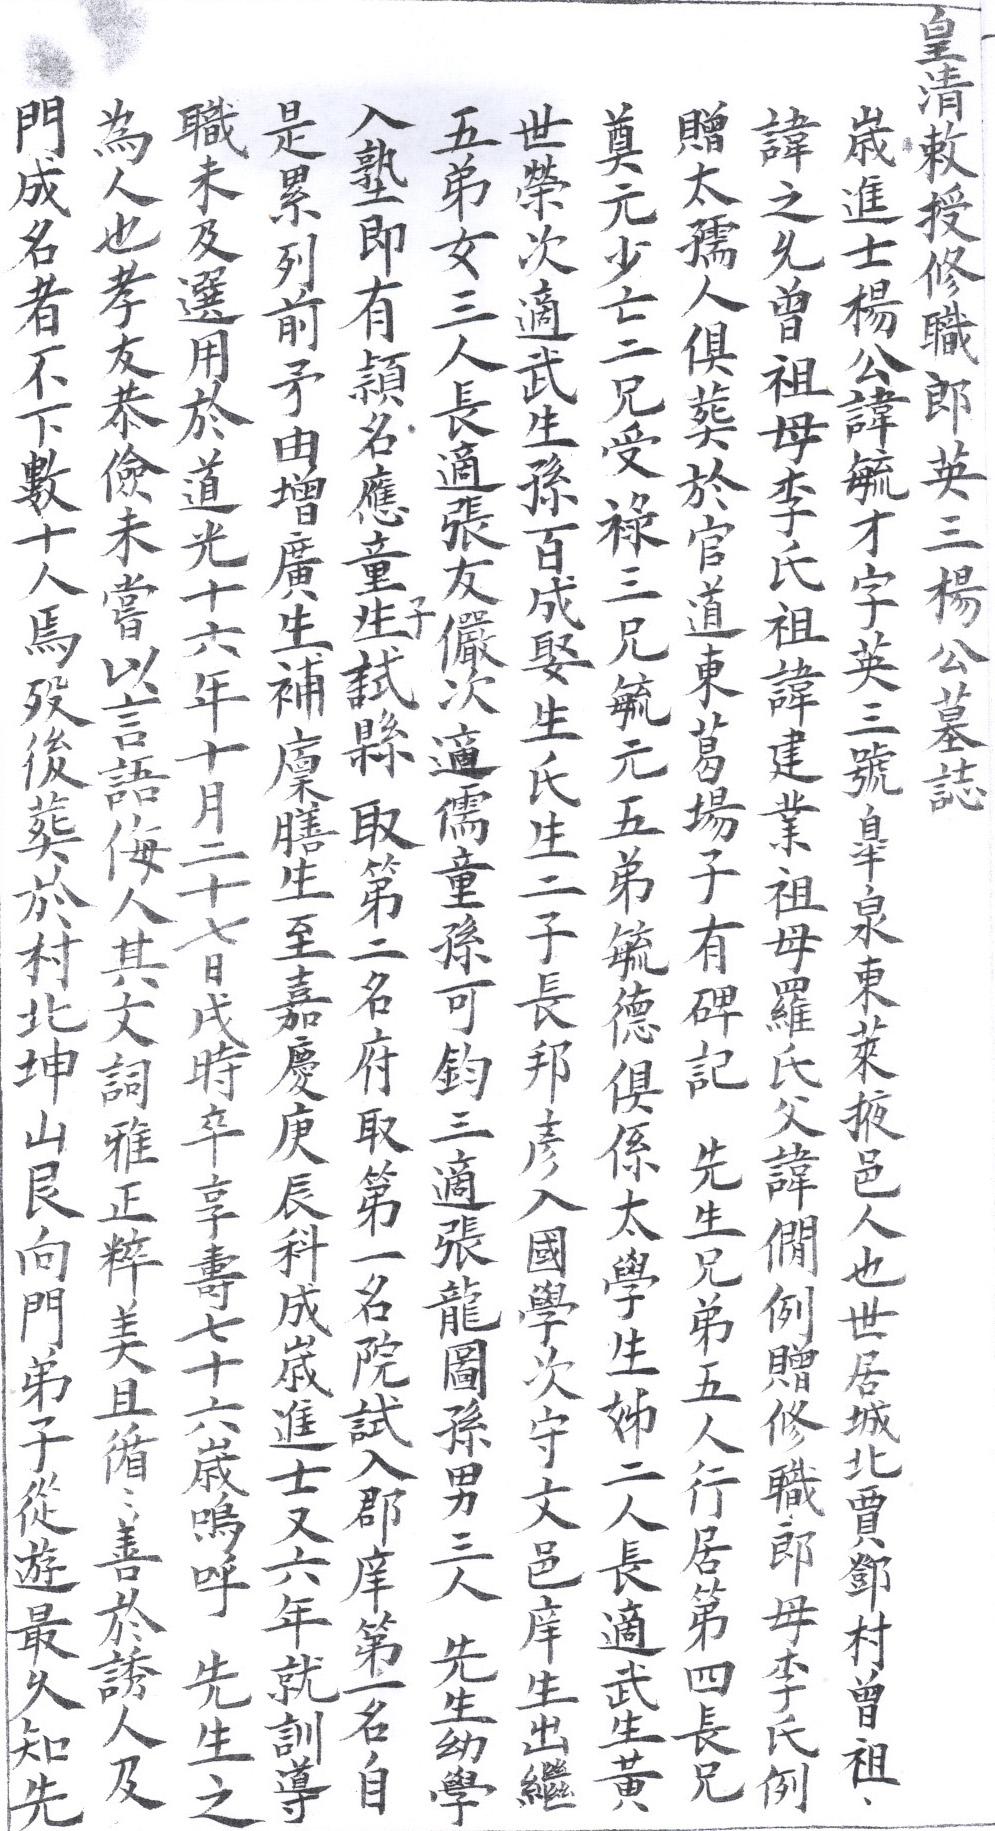 皇清敕授修職郎英三楊公墓誌
歲進士楊公諱毓才字英三號皐泉東萊掖邑人也世居城北賈鄧村曾祖
諱之允曾祖母李氏祖諱建業祖母羅氏父諱僩例贈修職郎母李氏例
贈太孺人俱葬於官道東葛場子有碑記 先生兄弟五人行居第四長兄
奠元少亡二兄受祿三兄毓元五弟毓德俱係太學生姊二人長適武生黃
世榮次適武生孫百成娶生氏生二子長邦彥入國學次守文邑庠生出繼
五弟女三人長適張友儼次適儒童孫可鈞三適張龍圖孫男三人 先生幼學
入塾即有頴名應童子試縣 取第二名府取第一名院試入郡庠第一名自
是累列前矛由增廣生補廩膳生至嘉慶庚辰科成歲進士又六年就訓導
職未及選用於道光十六年十月二十七日戌時卒享壽七十六歲嗚呼 先生之
為人也孝友恭儉未嘗以言語侮人其文詞雅正粹美且循〻善於誘人及
門成名者不下數十人焉歿後葬於村北坤山艮向門弟子從遊最久知先